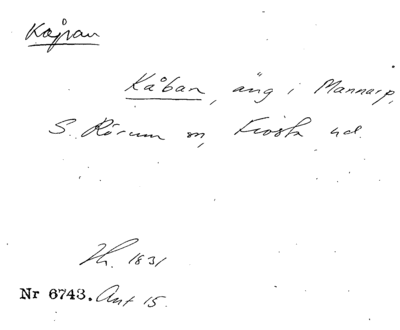 Kåpan
Kåban, äng i Mannarp,
S. Rörum sn, Frosta hd.
1831
Nr 6743. Ant 15.